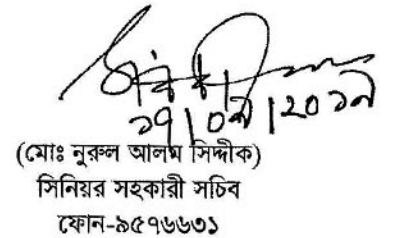 ১৭|০৯|২০১৯
(মোঃ নুরুল আলম সিদ্দীক)
সিনিয়র সহকারী সচিব
ফোন-৯৫৭৬৬৩১